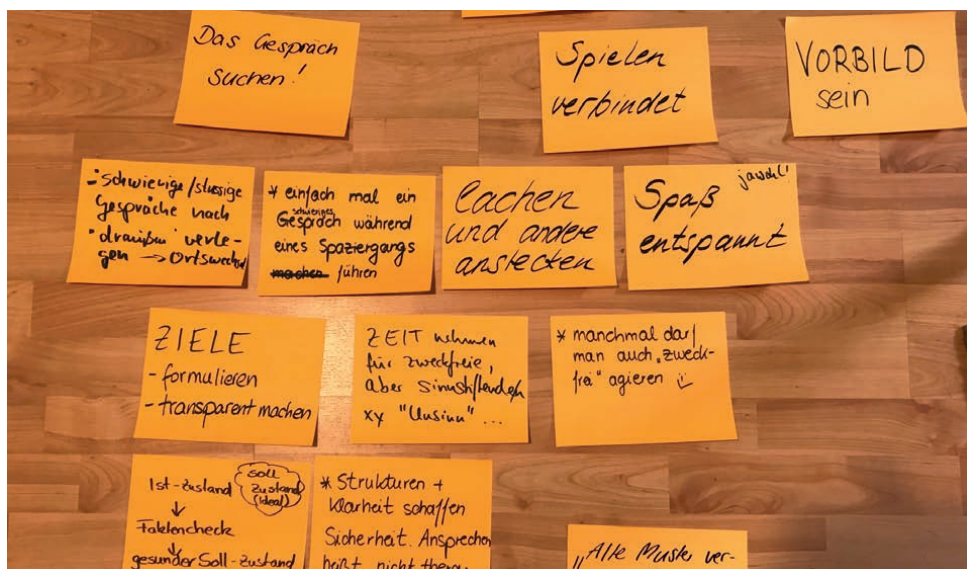 Das Gespräch
suchen!
Spielen
verbindet
VORBILD
sein
- schwierige/stressige
Gespräche nach
"draußen" verle-
gen → Ortswechsel
* einfach mal ein
schwieriges
Gespräch während
eines Spaziergangs
machen führen
Lachen
und andere
anstecken
Spaß
jawohl!
entspannt
ZIELE
- formulieren
- transparent machen
ZEIT nehmen
für zweckfreie,
aber sinnstiftenden
xy "Unsinn"...
* manchmal darf
man auch „zweck-
frei" agieren
Ist-Zustand
Soll
Zustand
(ideal)
↓
Faktencheck
↓
gesunder Soll-Zustand
* Strukturen +
Klarheit schaffen
Sicherheit. Ansprechen
heißt nicht
„Alte Muster ver-